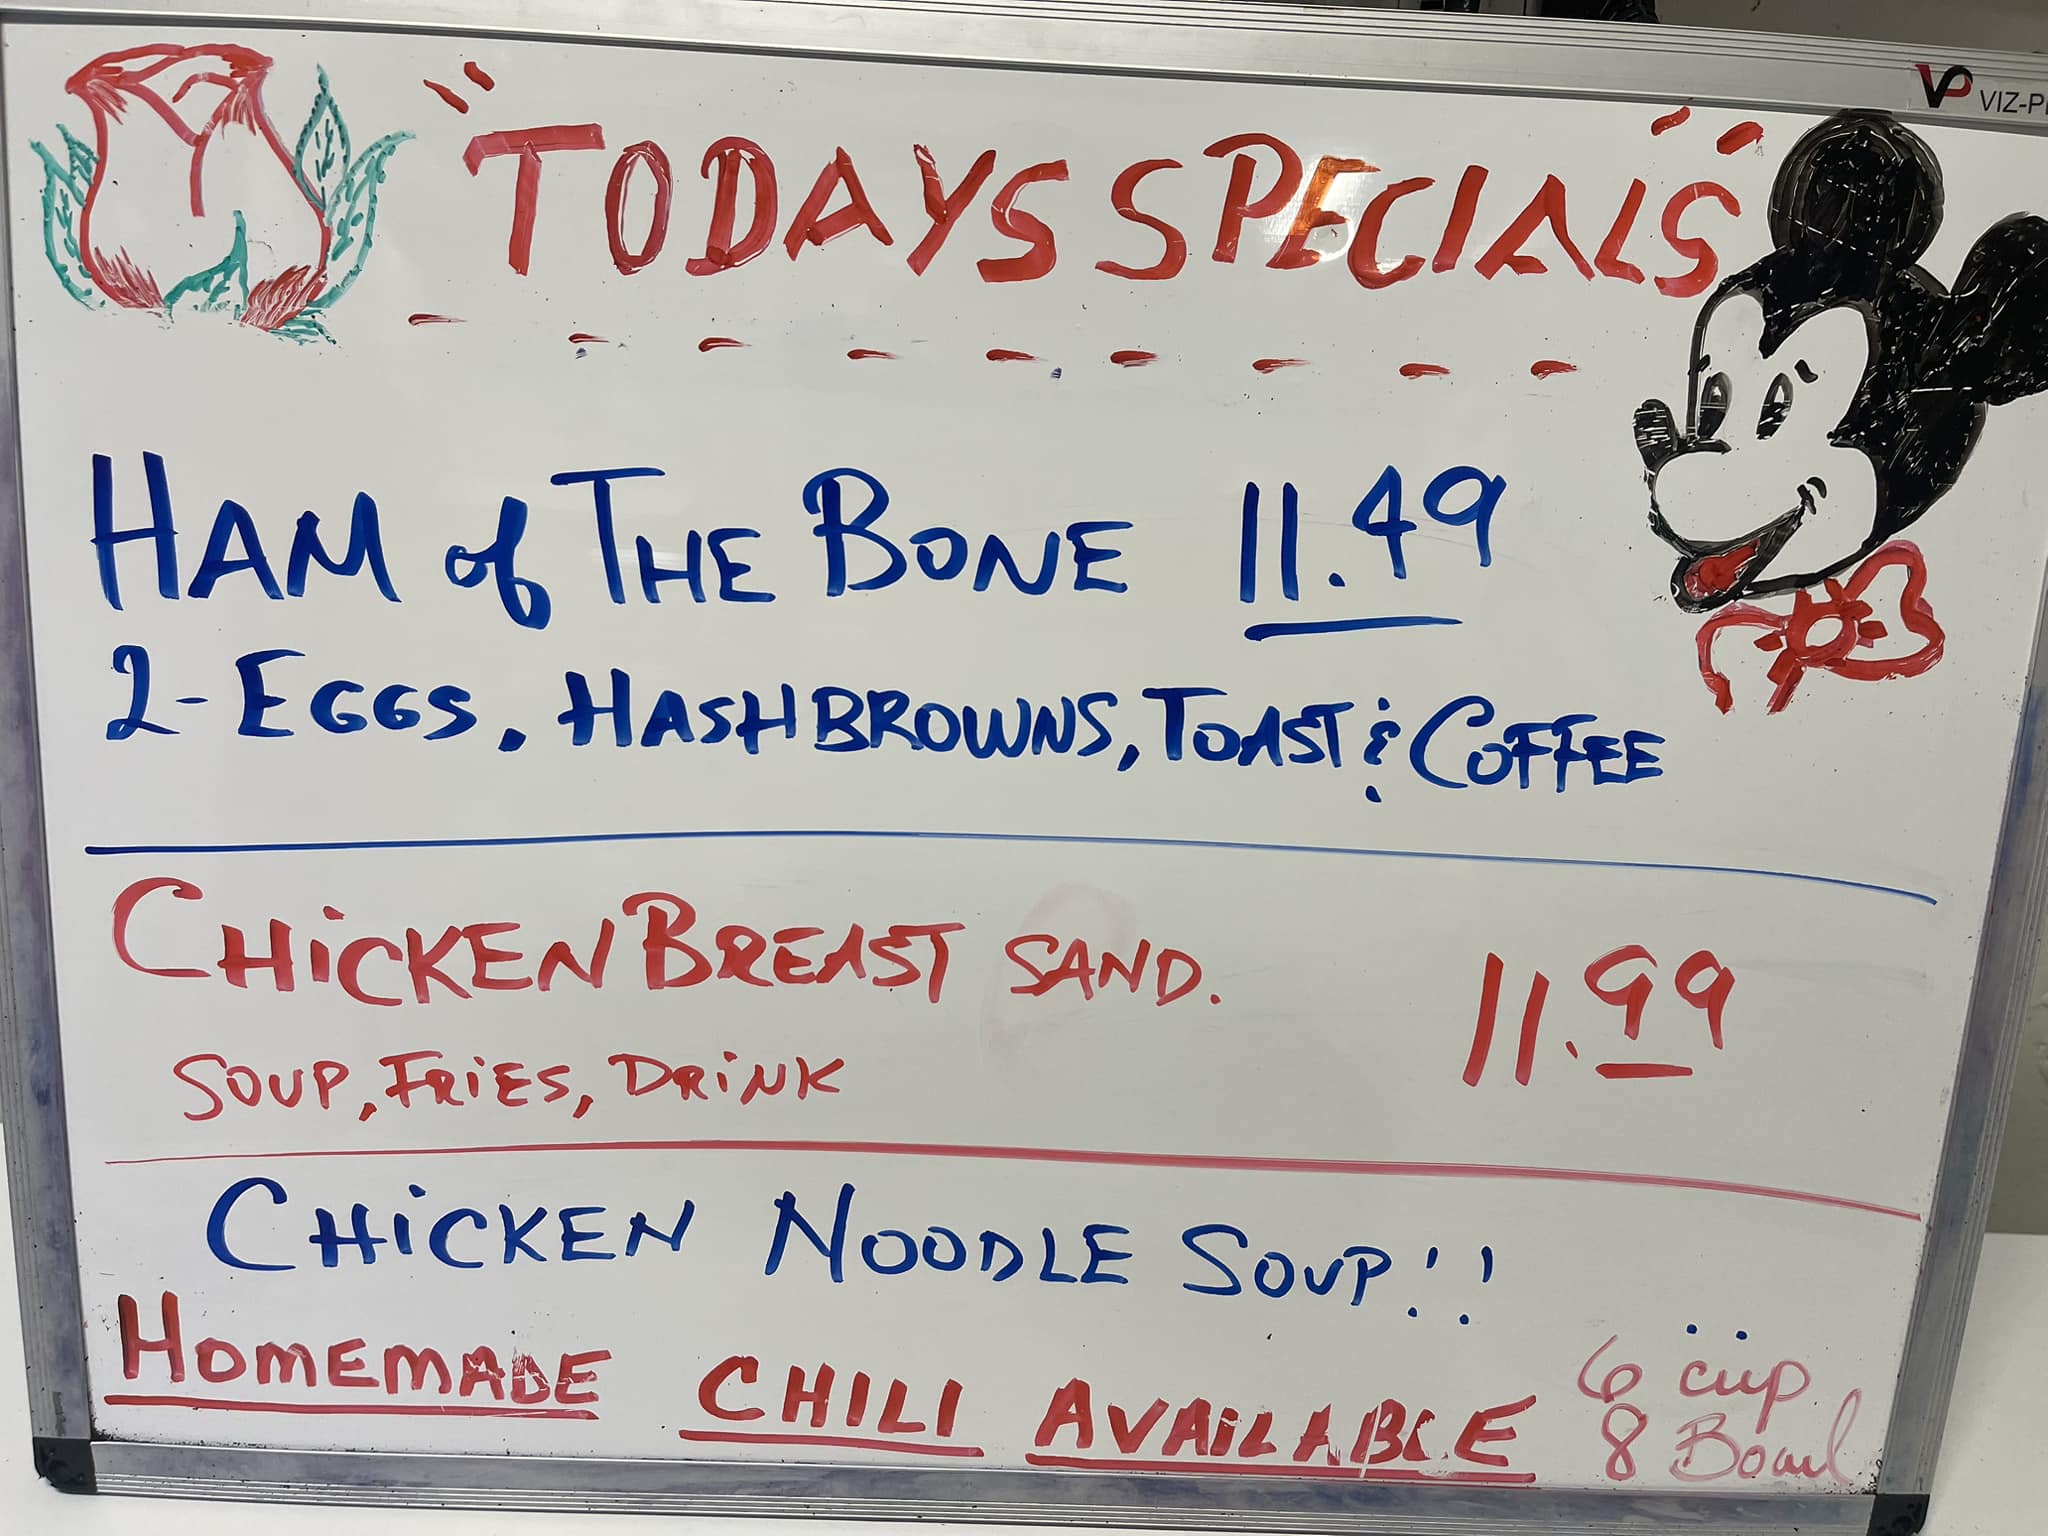 "TODAYS SPECIALS"
VIZ-P
HAM of THE BONE 11.49
2-EGGS, HASHBROWNS, TOAST & COFFEE
CHiCKEN BREAST SAND. 11.99
SOUP, FRiES, DRiNK
CHiCKEN NOODLE SOUP!!
HOMEMADE CHILI AVAiLABLE
6 cup
8 Bowl